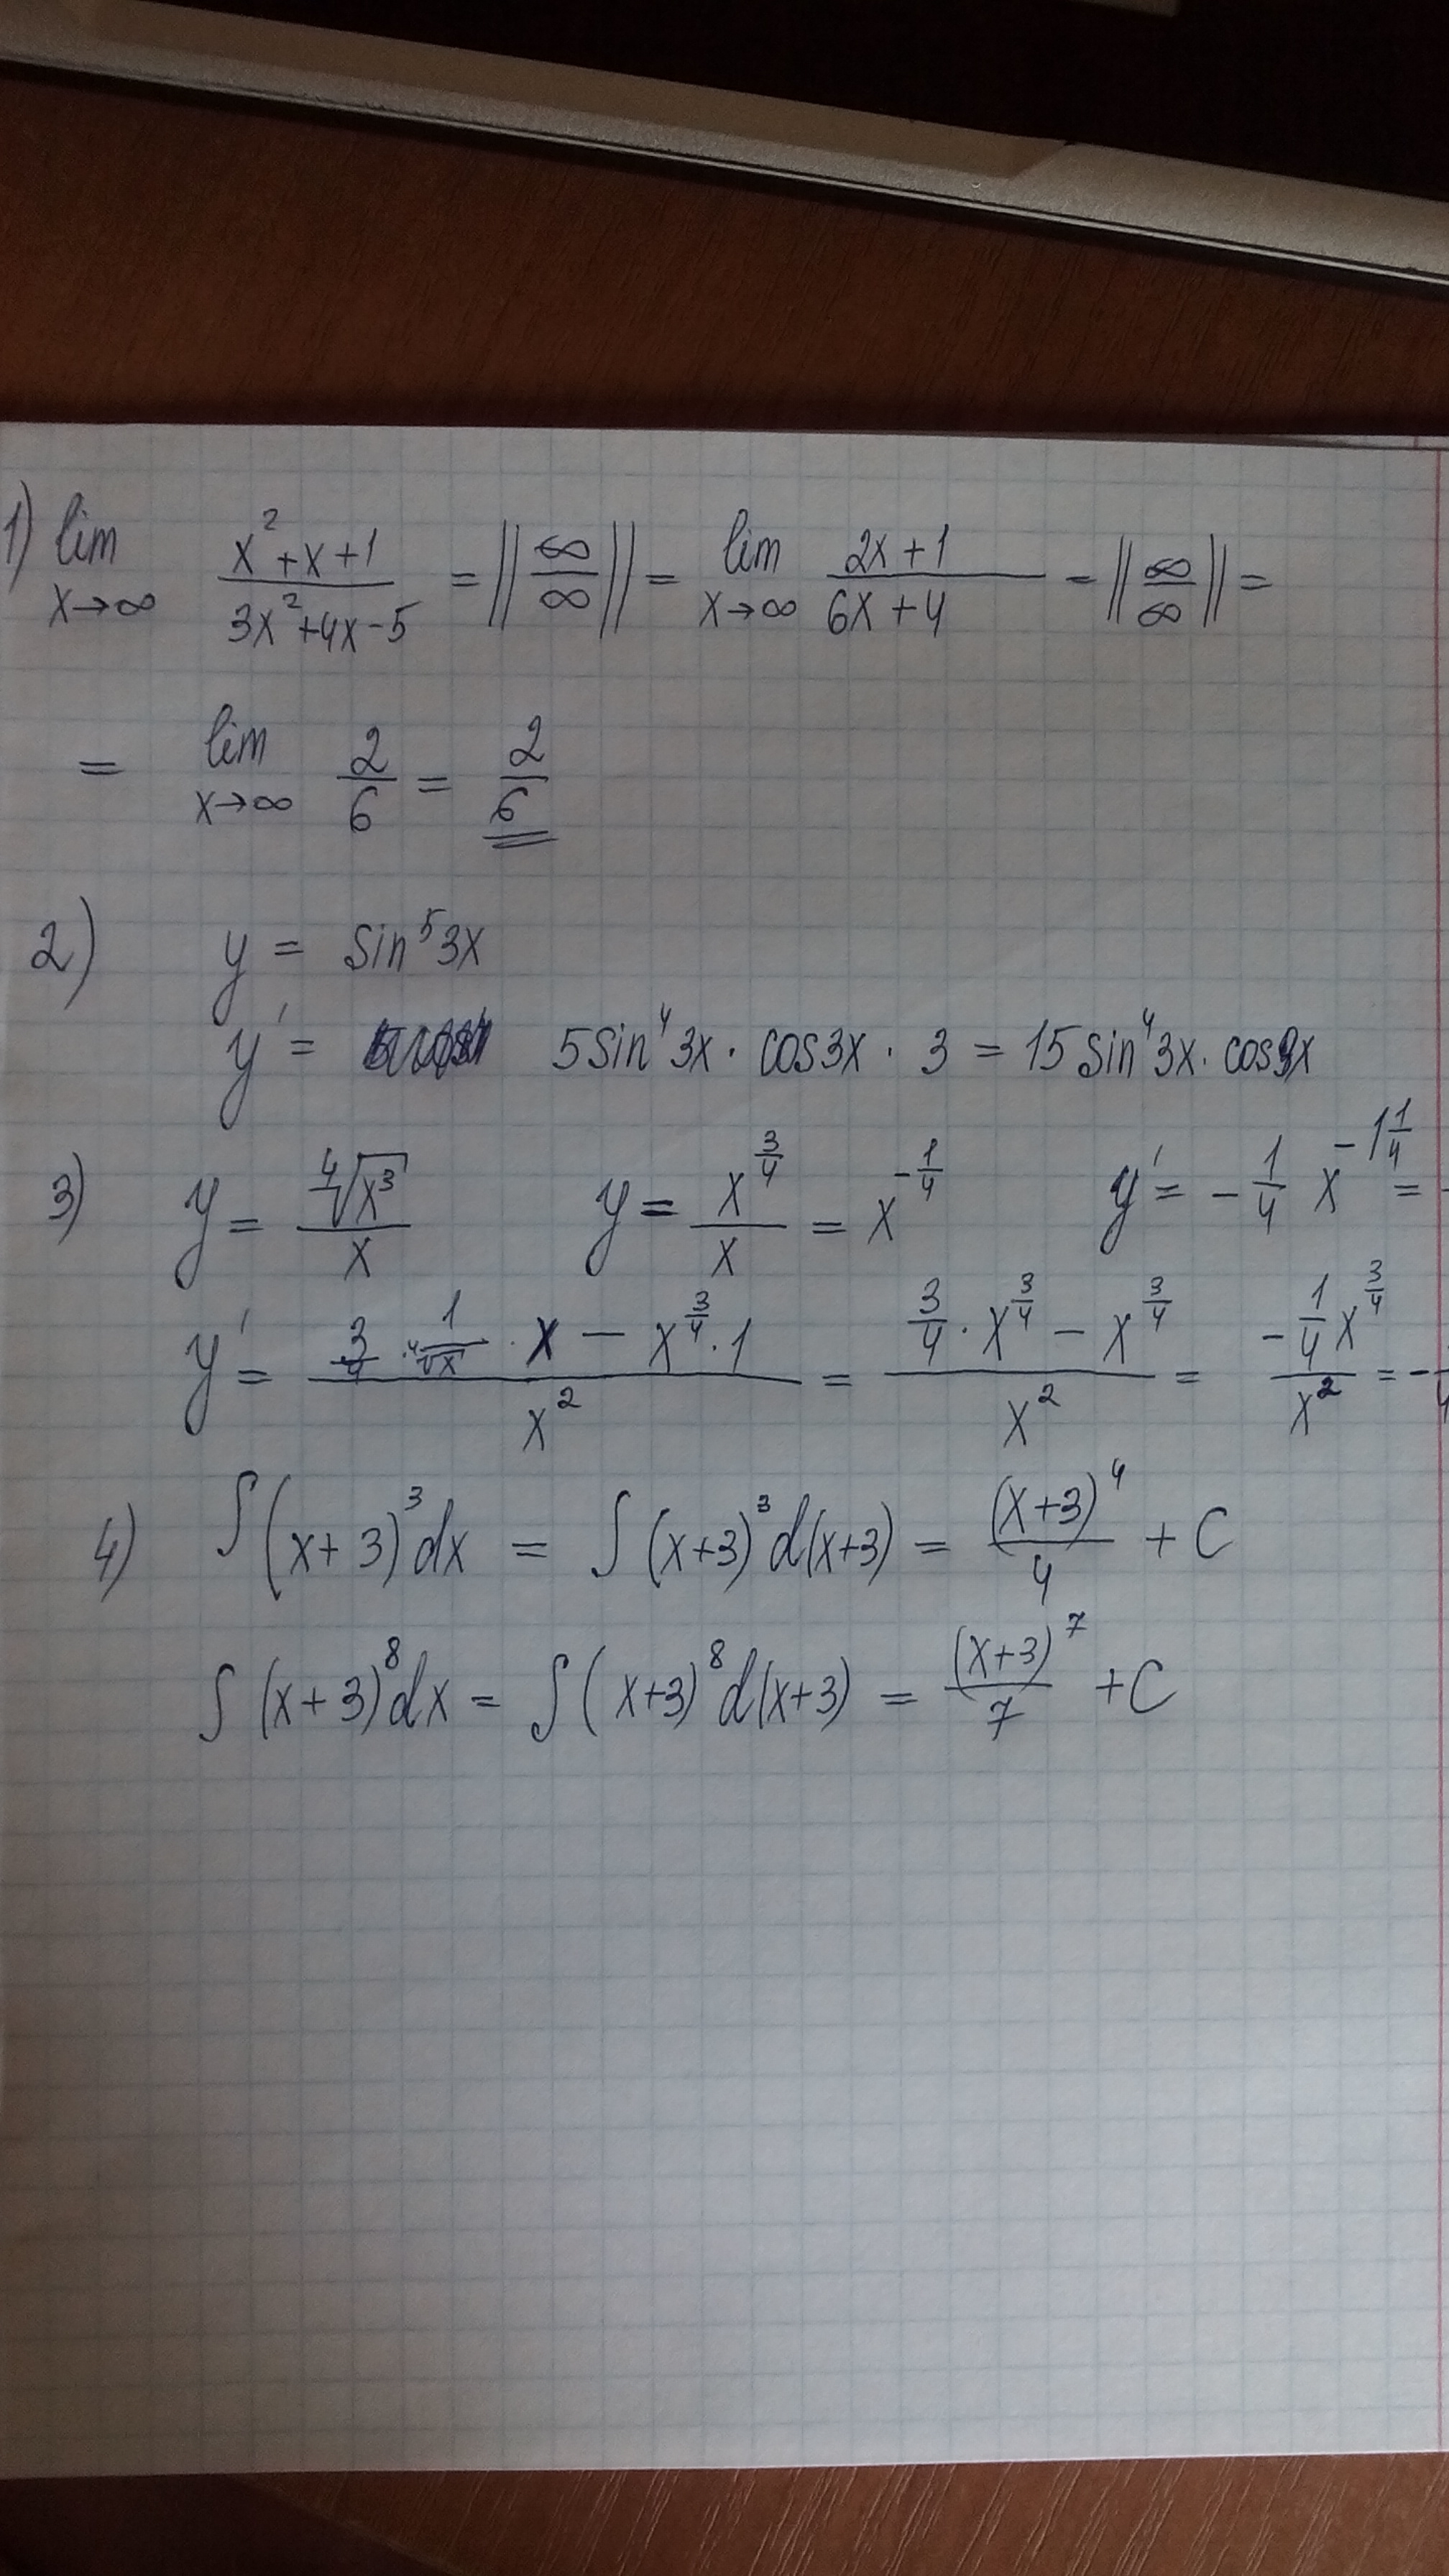 1) lim x→∞ (x²+x+1)/(3x²+4x-5) = ||∞/∞|| = lim x→∞ (2x+1)/(6x+4) - ||∞/∞|| =
= lim x→∞ 2/6 = 2/6
2) y = sin⁵3x
y' = 5sin⁴3x · cos3x · 3 = 15sin⁴3x · cos3x
3) y = ∜x³/x y = x^(3/4)/x = x^(-1/4) y' = -1/4 x^(-1 1/4) = -
y' = (3/4 · 1/∜x · x - x^(3/4) · 1)/x² = (3/4 · x^(3/4) - x^(3/4))/x² = (-1/4 x^(3/4))/x² = -
4) ∫(x+3)³dx = ∫(x+3)³d(x+3) = (x+3)⁴/4 + C
∫(x+3)⁸dx = ∫(x+3)⁸d(x+3) = (x+3)⁷/7 + C